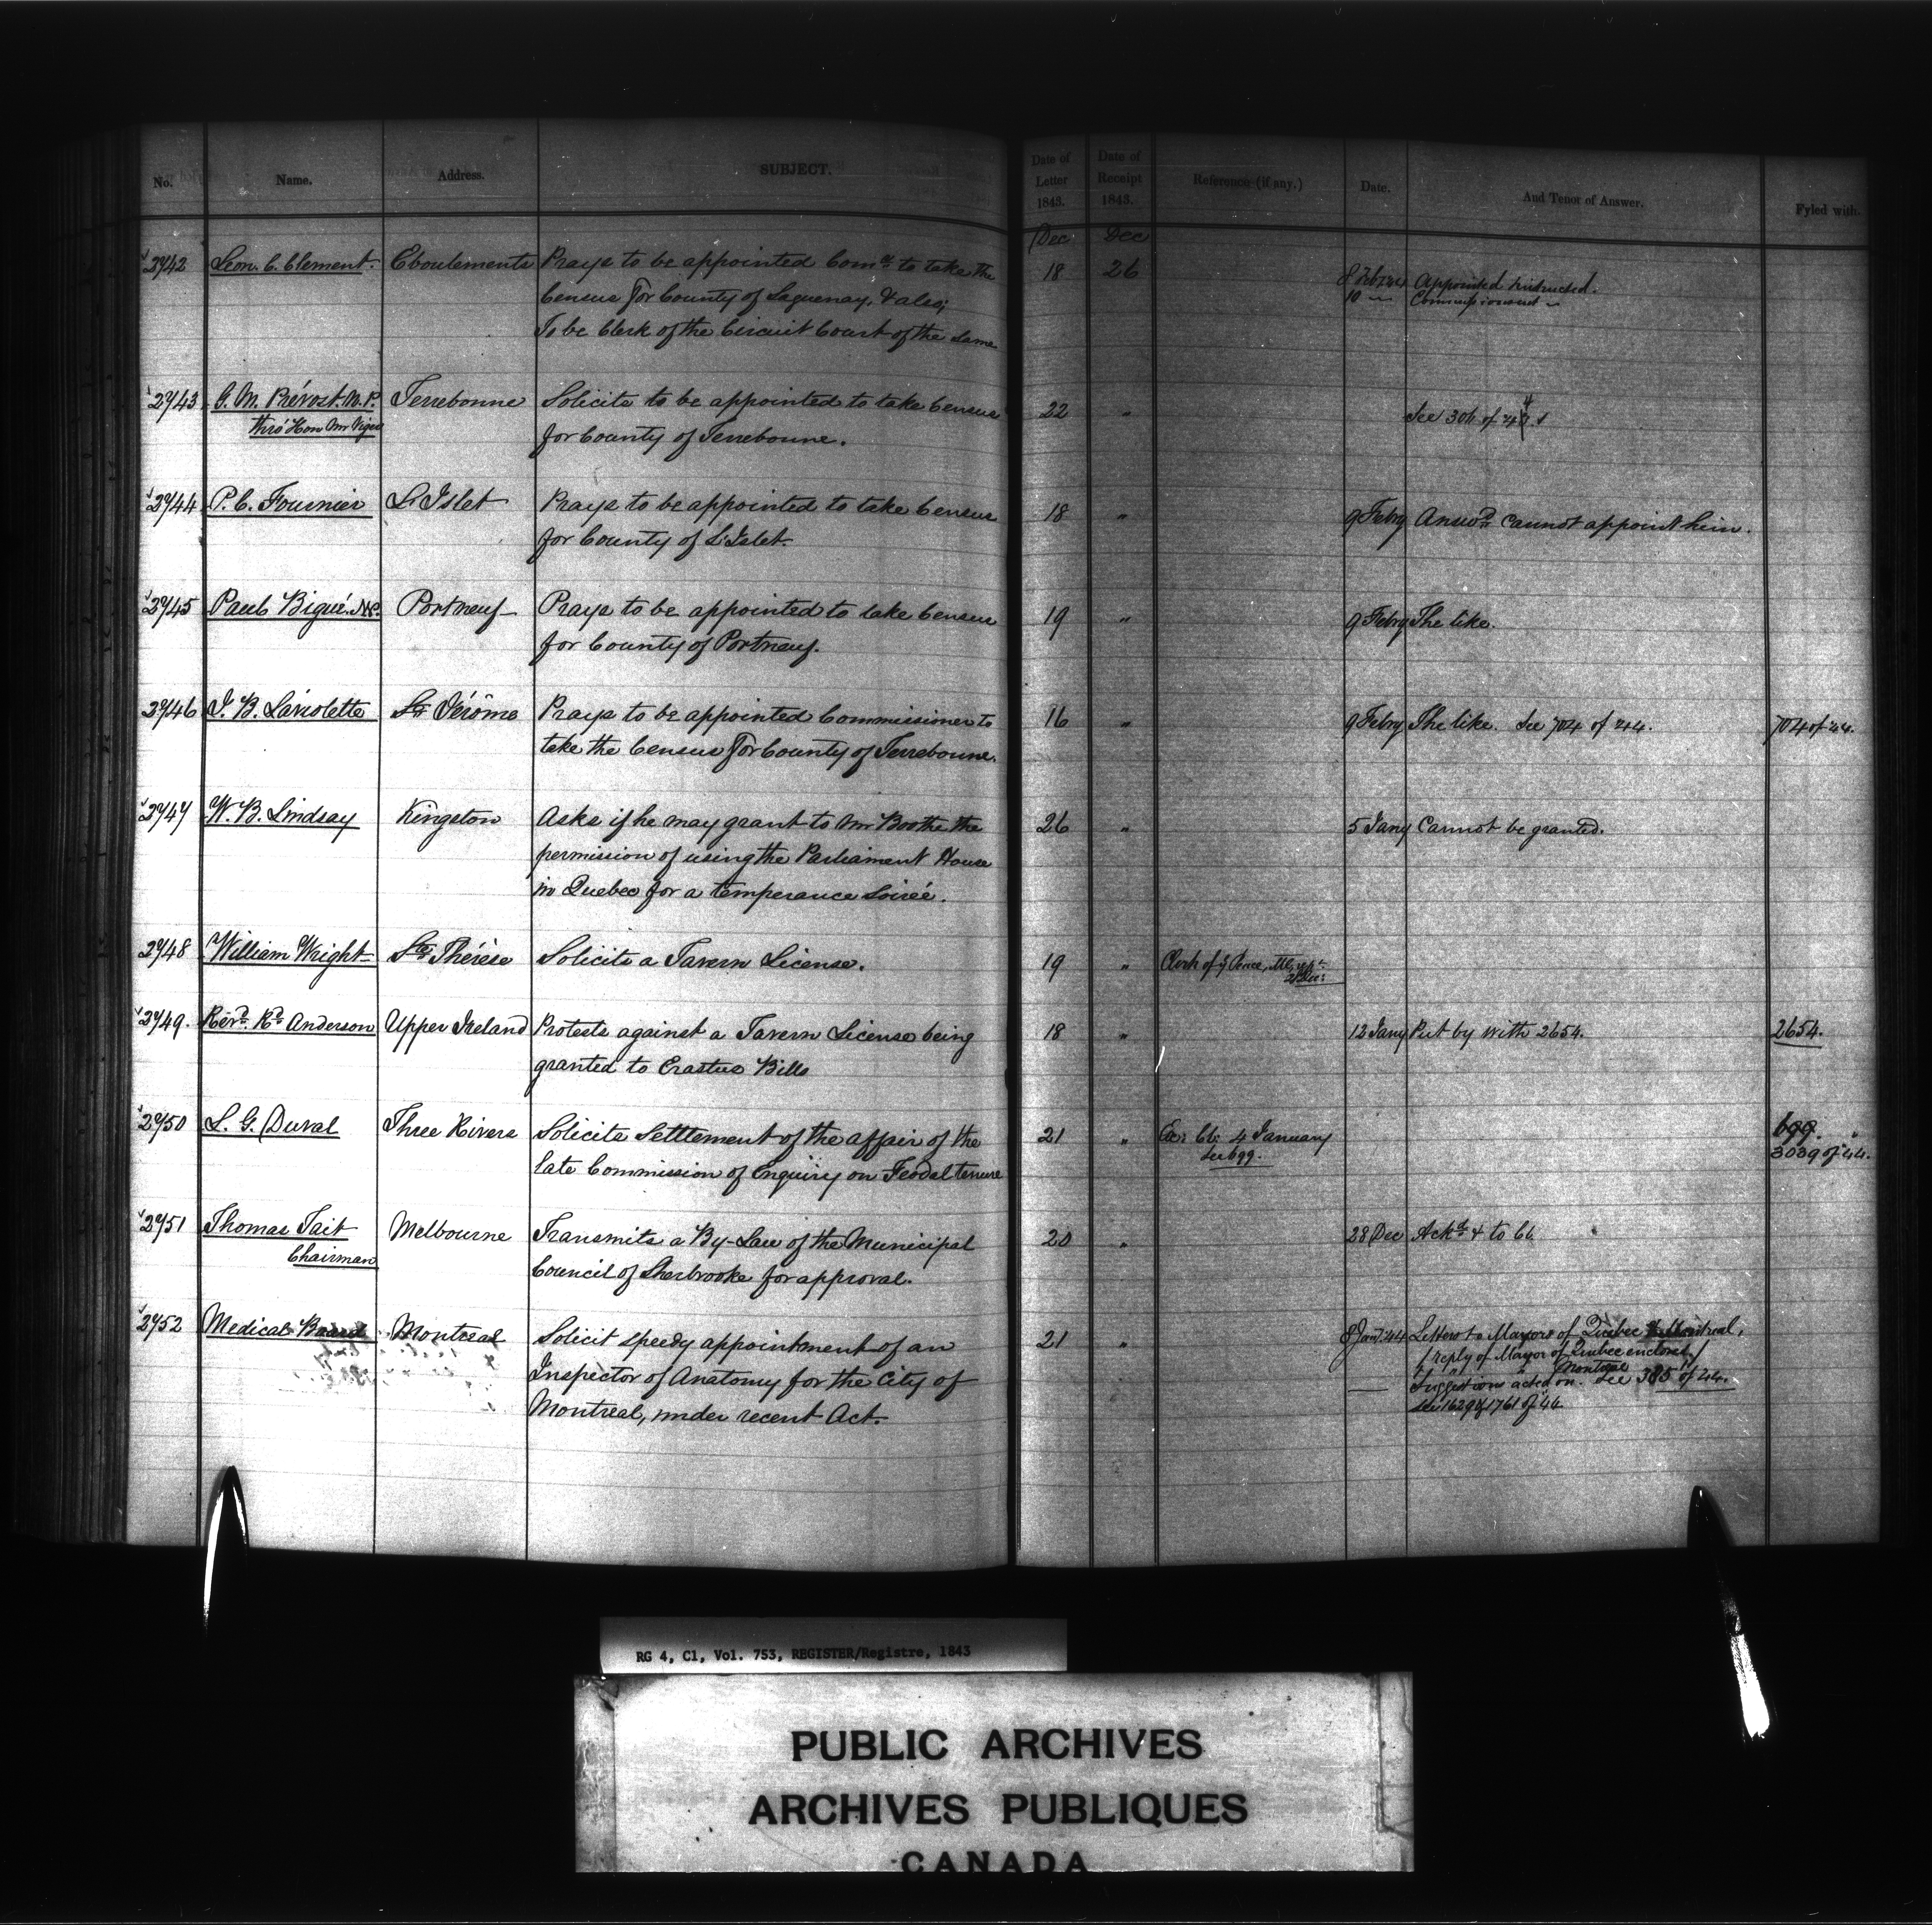 No. Name. Address. SUBJECT. Date of Letter 1843. Date of Receipt 1843. Reference (if any.) Date. And Tenor of Answer. Fyled with.
Dec Dec
2742 Leon. C. Clement. Eboulements Prays to be appointed Comr. to take the 18 26 8 Feb 44 Appointed Instructed.
Census for County of Saguenay, & also; 10 〃 Commissioned 〃
To be Clerk of the Circuit Court of the same
2743 G. M. Prévost. N.P. Terrebonne Solicits to be appointed to take Census 22 〃 See 306 of 44
Thro' Hon Mr Viger for County of Terrebonne.
2744 P. C. Fournier L'Islet Prays to be appointed to take Census 18 〃 9 Febry Answd. Cannot appoint him.
for County of L'Islet.
2745 Paul Bigué. N.P. Portneuf Prays to be appointed to take Census 19 〃 9 Febry The like.
for County of Portneuf.
2746 J. B. Laviolette St. Jérôme Prays to be appointed Commissioner to 16 〃 9 Febry The like. See 704 of 44. 704 of 44.
take the Census for County of Terrebonne.
2747 W. B. Lindsay Kingston Asks if he may grant to Mr Boothe the 26 〃 5 Jany Cannot be granted.
permission of using the Parliament House
in Quebec for a temperance Soireé.
2748 William Wright Ste. Thérèse Solicits a Tavern License. 19 〃 Clerk of ye Peace,
2749. Revd. Rd. Anderson Upper Ireland Protests against a Tavern License being 18 〃 12 Jany Put by with 2654. 2654.
granted to Erastus Bills
2750 L. G. Duval Three Rivers Solicits Settlement of the affair of the 21 〃 Ex: Cl: 4 January 699.
late Commission of Enquiry on Feodal tenure See 699. 3039 of 44.
2751 Thomas Tait Melbourne Transmits a By-Law of the Municipal 20 〃 28 Dec Ackd. & to Cl.
Chairman Council of Sherbrooke for approval.
2752 Medical Board Montreal Solicit speedy appointment of an 21 〃 8 Jany. 44 Letters to Mayors of Quebec & Montreal,
/ reply of Mayor of Quebec enclosed /
Inspector of Anatomy for the City of Montreal
Suggestions acted on. See 385 of 44.
Montreal, under recent Act. See 1629 & 1761 of 44
RG 4, C1, Vol. 753, REGISTER/Registre, 1843
PUBLIC ARCHIVES
ARCHIVES PUBLIQUES
CANADA